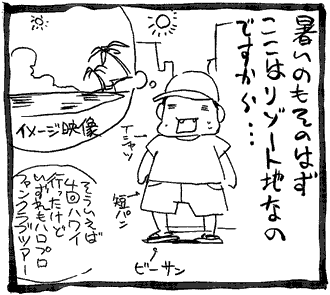 暑いのもそのはず
ここはリゾート地なの
ですから…
イメージ映像
Tシャツ
短パン
ビーサン
そういえば
4回ハワイ
行ったけど
いずれもハロプロ
ファンクラブツアー